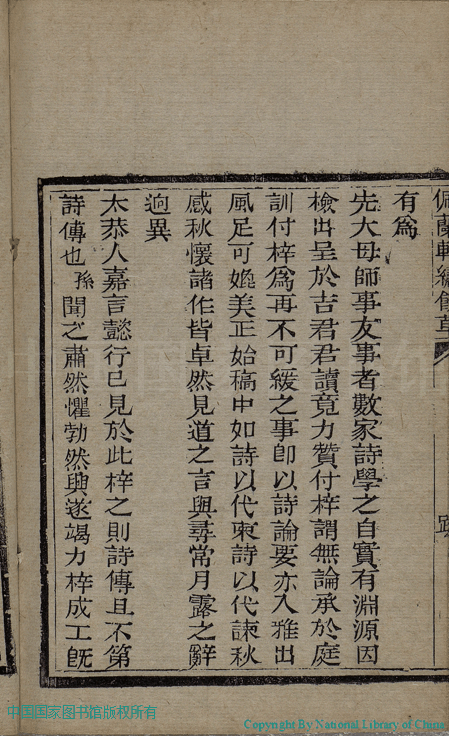 有爲
先大母師事友事者數家詩學之自實有淵源因
檢出呈於吉君君讀竟力贊付梓謂無論承於庭
訓付梓爲再不可緩之事卽以詩論要亦入雅出
風足可媲美正始稿中如詩以代柬詩以代諫秋
感秋懷諸作皆卓然見道之言與尋常月露之辭
逈異
太恭人嘉言懿行已見於此梓之則詩傳且不第
詩傳也孫聞之肅然懼勃然興遂竭力梓成工旣
中国国家图书馆版权所有
Copyright By National Library of China